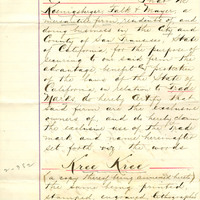 Koenigsberger, Falk & Mayer, a
mercantile firm, resident of and
doing business in the City and
County of San Francisco State
of California, for the purpose of
securing to our said firm the
advantage, benefit & protection
of the laws of the State of
California, in relation to Trade
Marks do hereby certify that
said firm are the exclusive
owners of, and do hereby claim
the exclusive use of the Trade
Mark and name hereinafter
set forth viz the words
Kree Kree
(a copy thereof being annexed hereto)
the same being printed,
stamped, engraved, lithographed